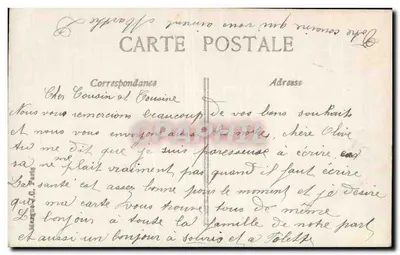 Votre cousine qui vous aiment Marthe L
CARTE POSTALE
Correspondance
Adresse
Cher Cousin et Cousine
Nous vous remercions beaucoup de vos bons souhaits
et nous vous envoyon aussi a votre, chère Olive
tu me dit que je suis paresseuse à écrire car
sa ne plait vraiment pas quand il faut écrire
La santé est assez bonne pour le moment et je désire
que ma carte vous trouve tous de même
Le bonjour à toute la famille de notre part
et aussi un bonjour à souris et a Folette